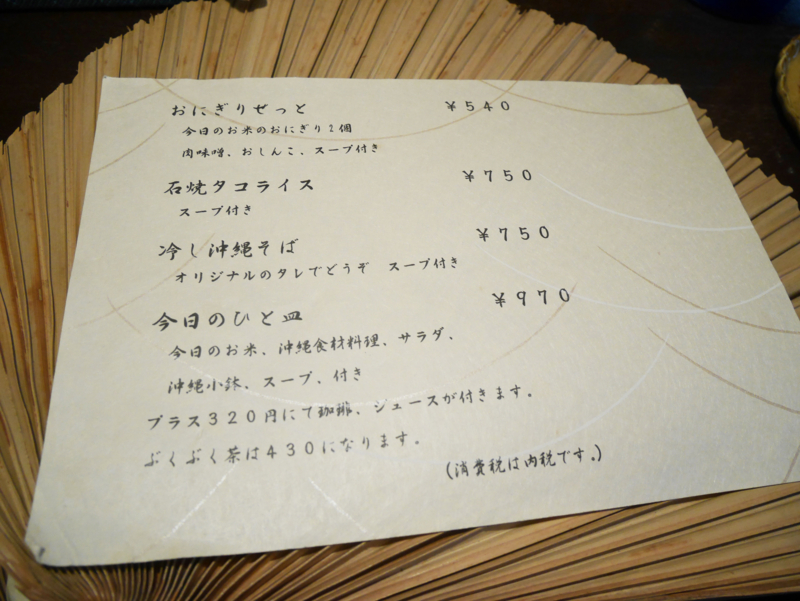 おにぎりせっと ￥５４０
今日のお米のおにぎり２個
肉味噌、おしんこ、スープ付き
石焼タコライス ￥７５０
スープ付き
冷し沖縄そば ￥７５０
オリジナルのタレでどうぞ　スープ付き
今日のひと皿 ￥９７０
今日のお米、沖縄食材料理、サラダ、
沖縄小鉢、スープ、付き
プラス３２０円にて珈琲、ジュースが付きます。
ぶくぶく茶は４３０になります。
(消費税は内税です。)